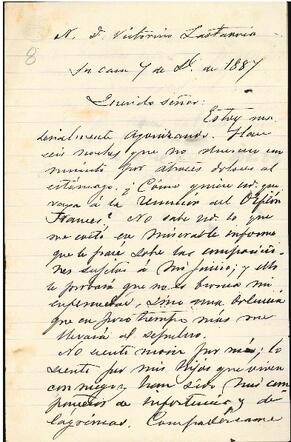 8
N. D. Victorino Lastarria
Su casa 7 de D. de 1887
Querido señor:
Estoy ma-
terialmente agonizando. Hace
seis noches que no duermo un
minuto por atroces dolores al
estómago. ¿Cómo quiere Ud. que
vaya á la reunion del Orfeón
Francés? No sabe Ud. lo que
me costó un miserable informe
que le pasé sobre las composicio-
nes sujetas á mi juicio; y ello
le probará que no es broma mi
enfermedad, sino una dolencia
que en poco tiempo mas me
llevará al sepulcro.
No siento morir por mí; lo
siento por mis hijos que viven
conmigo, han sido mis com-
pañeros de infortunio y de
lágrimas. Compadézcame